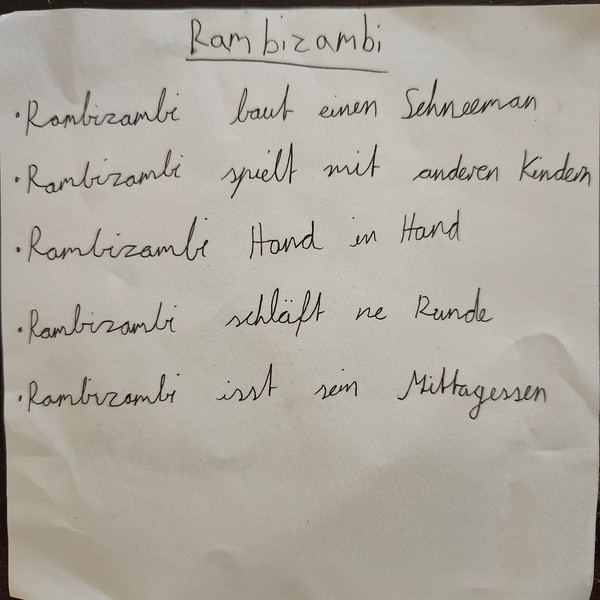 Rambizambi
· Rambizambi baut einen Schneeman
· Rambizambi spielt mit anderen Kindern
· Rambizambi Hand in Hand
· Rambizambi schläft ne Runde
· Rambizambi isst sein Mittagessen